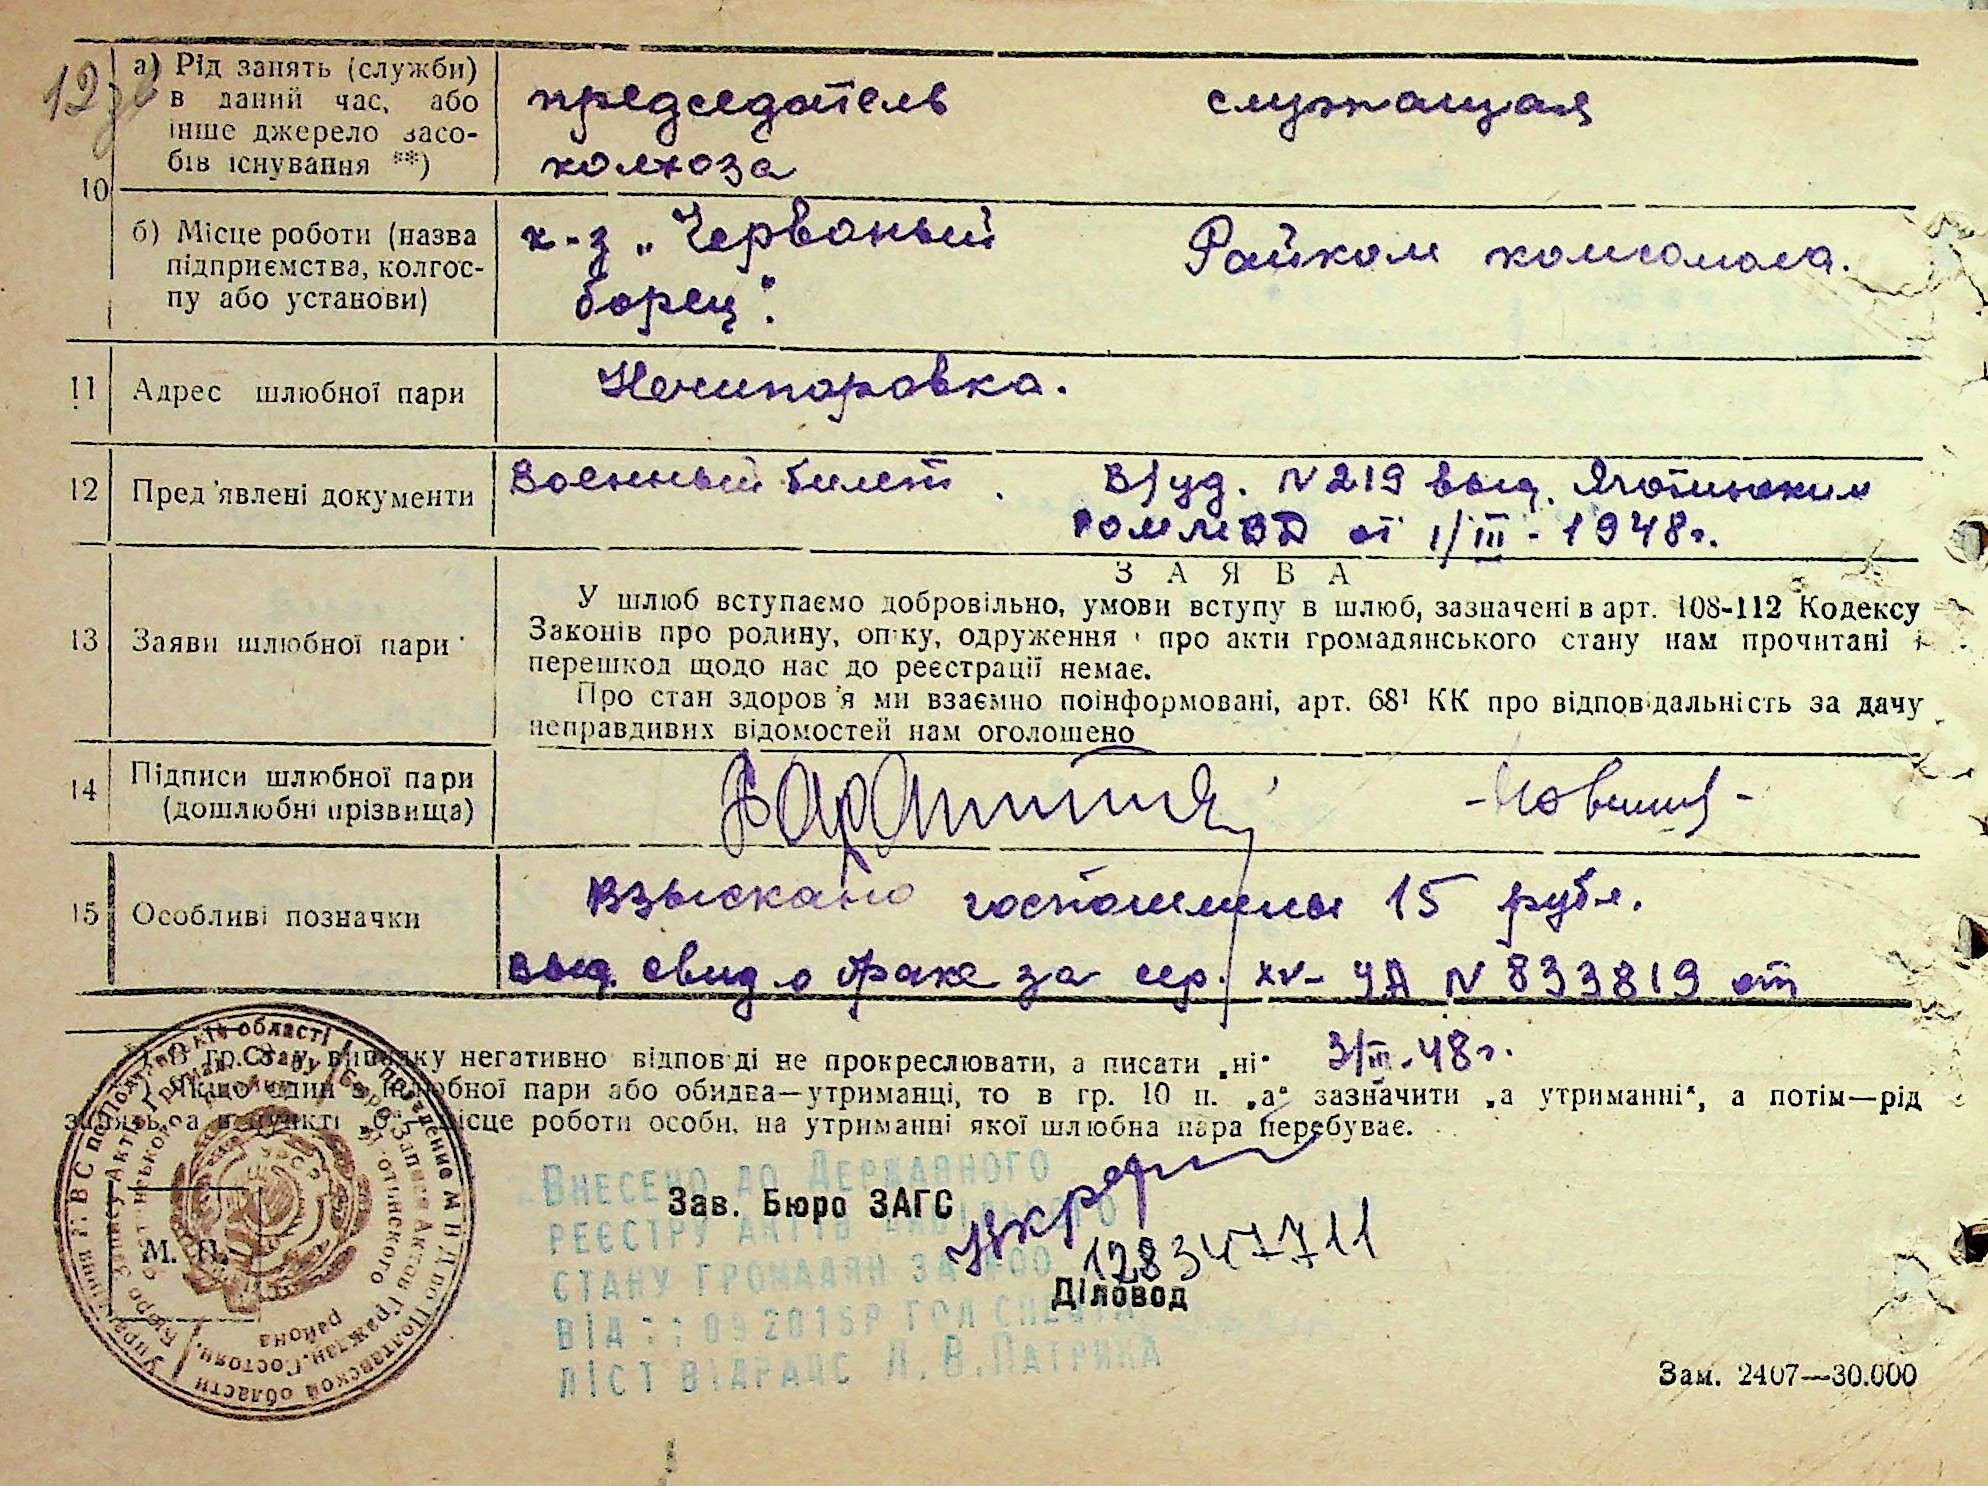 12
а) Рід занять (служби)
в даний час, або
інше джерело засо-
бів існування **)
председатель
колхоза
служащая
10
б) Місце роботи (назва
підприємства, колгос-
пу або установи)
к-з „Червоный
борец".
Райком комсомола.
11 Адрес шлюбної пари
Нечипоровка.
12 Пред'явлені документи
Военный билет.
В/уд. N 219 выд. Яготинским
РОМВД от 1/III - 1948г.
13 Заяви шлюбної пари
ЗАЯВА
У шлюб вступаємо добровільно, умови вступу в шлюб, зазначені в арт. 108-112 Кодексу
Законів про родину, опіку, одруження і про акти громадянського стану нам прочитані і
перешкод щодо нас до реєстрації немає.
Про стан здоров'я ми взаємно поінформовані, арт. 68¹ КК про відповідальність за дачу
неправдивих відомостей нам оголошено
14 Підписи шлюбної пари
(дошлюбні прізвища)
15 Особливі позначки
Взыскано госпошлины 15 рубл.
выд. свид о браке за сер. XV-УА N 833819 от
3/III-48г.
В гр. випадку негативно відповіді не прокреслювати, а писати „ні"
Якщо один з шлюбної пари або обидва—утриманці, то в гр. 10 п. „а" зазначити „а утриманні", а потім—рід
занять, а в пункті „б" місце роботи особи, на утриманні якої шлюбна пара перебуває.
М. П.
Внесено до Державного
реєстру актів цивільного
стану громадян за №00
12834 7711
Зав. Бюро ЗАГС
Діловод
від 09 2015р гол спеціа
ліст відрацс Л. В. Патрика
Зам. 2407—30.000